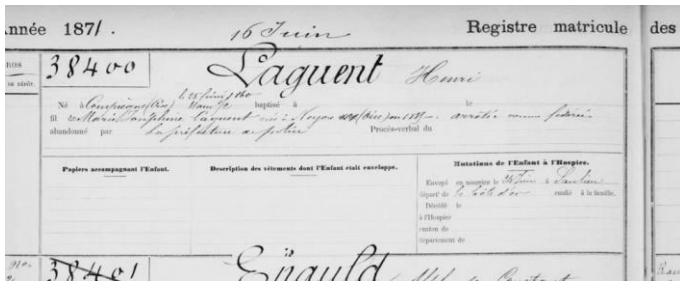 Année 1871.
16 Juin
Registre matricule
des
38400
Laguent Henri
le 28 février 1860
Né à Compiègne (Oise) baptisé à le
fil de Marie Joséphine Laguent née à Noyon (Oise) en arrêtée comme fédérée
abandonné par La préfecture de police Procès-verbal du
Papiers accompagnant l'Enfant.
Description des vêtements dont l'Enfant était enveloppé.
Mutations de l'Enfant à l'Hospice.
Envoyé en nourrice le 24 Juin à Saulieu
départ de la Côte d'or confié à la famille.
Décédé le
à l'Hospice
canton de
département de
38401